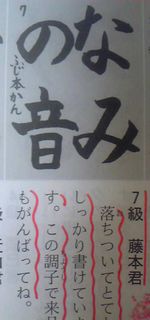 7
なみ
の音
ふじ本かん
7級 藤本君
落ちついてとて
しっかり書けてい
す。この調子で来
もがんばってね。